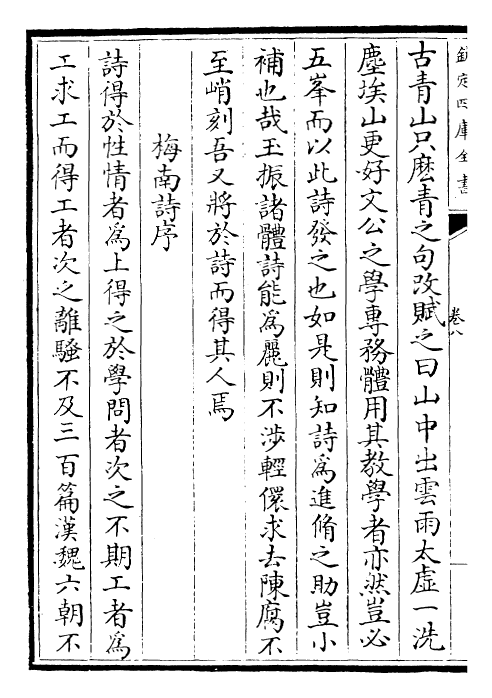 欽定四庫全書
卷八
古青山只麽青之句改賦之曰山中出雲雨太虛一洗
塵埃山更好文公之學專務體用其教學者亦然豈必
五峯而以此詩發之也如是則知詩為進脩之助豈小
補也哉玉振諸體詩能為麗則不涉輕儇求去陳腐不
至峭刻吾又將於詩而得其人焉
梅南詩序
詩得於性情者為上得之於學問者次之不期工者為
工求工而得工者次之離騷不及三百篇漢魏六朝不